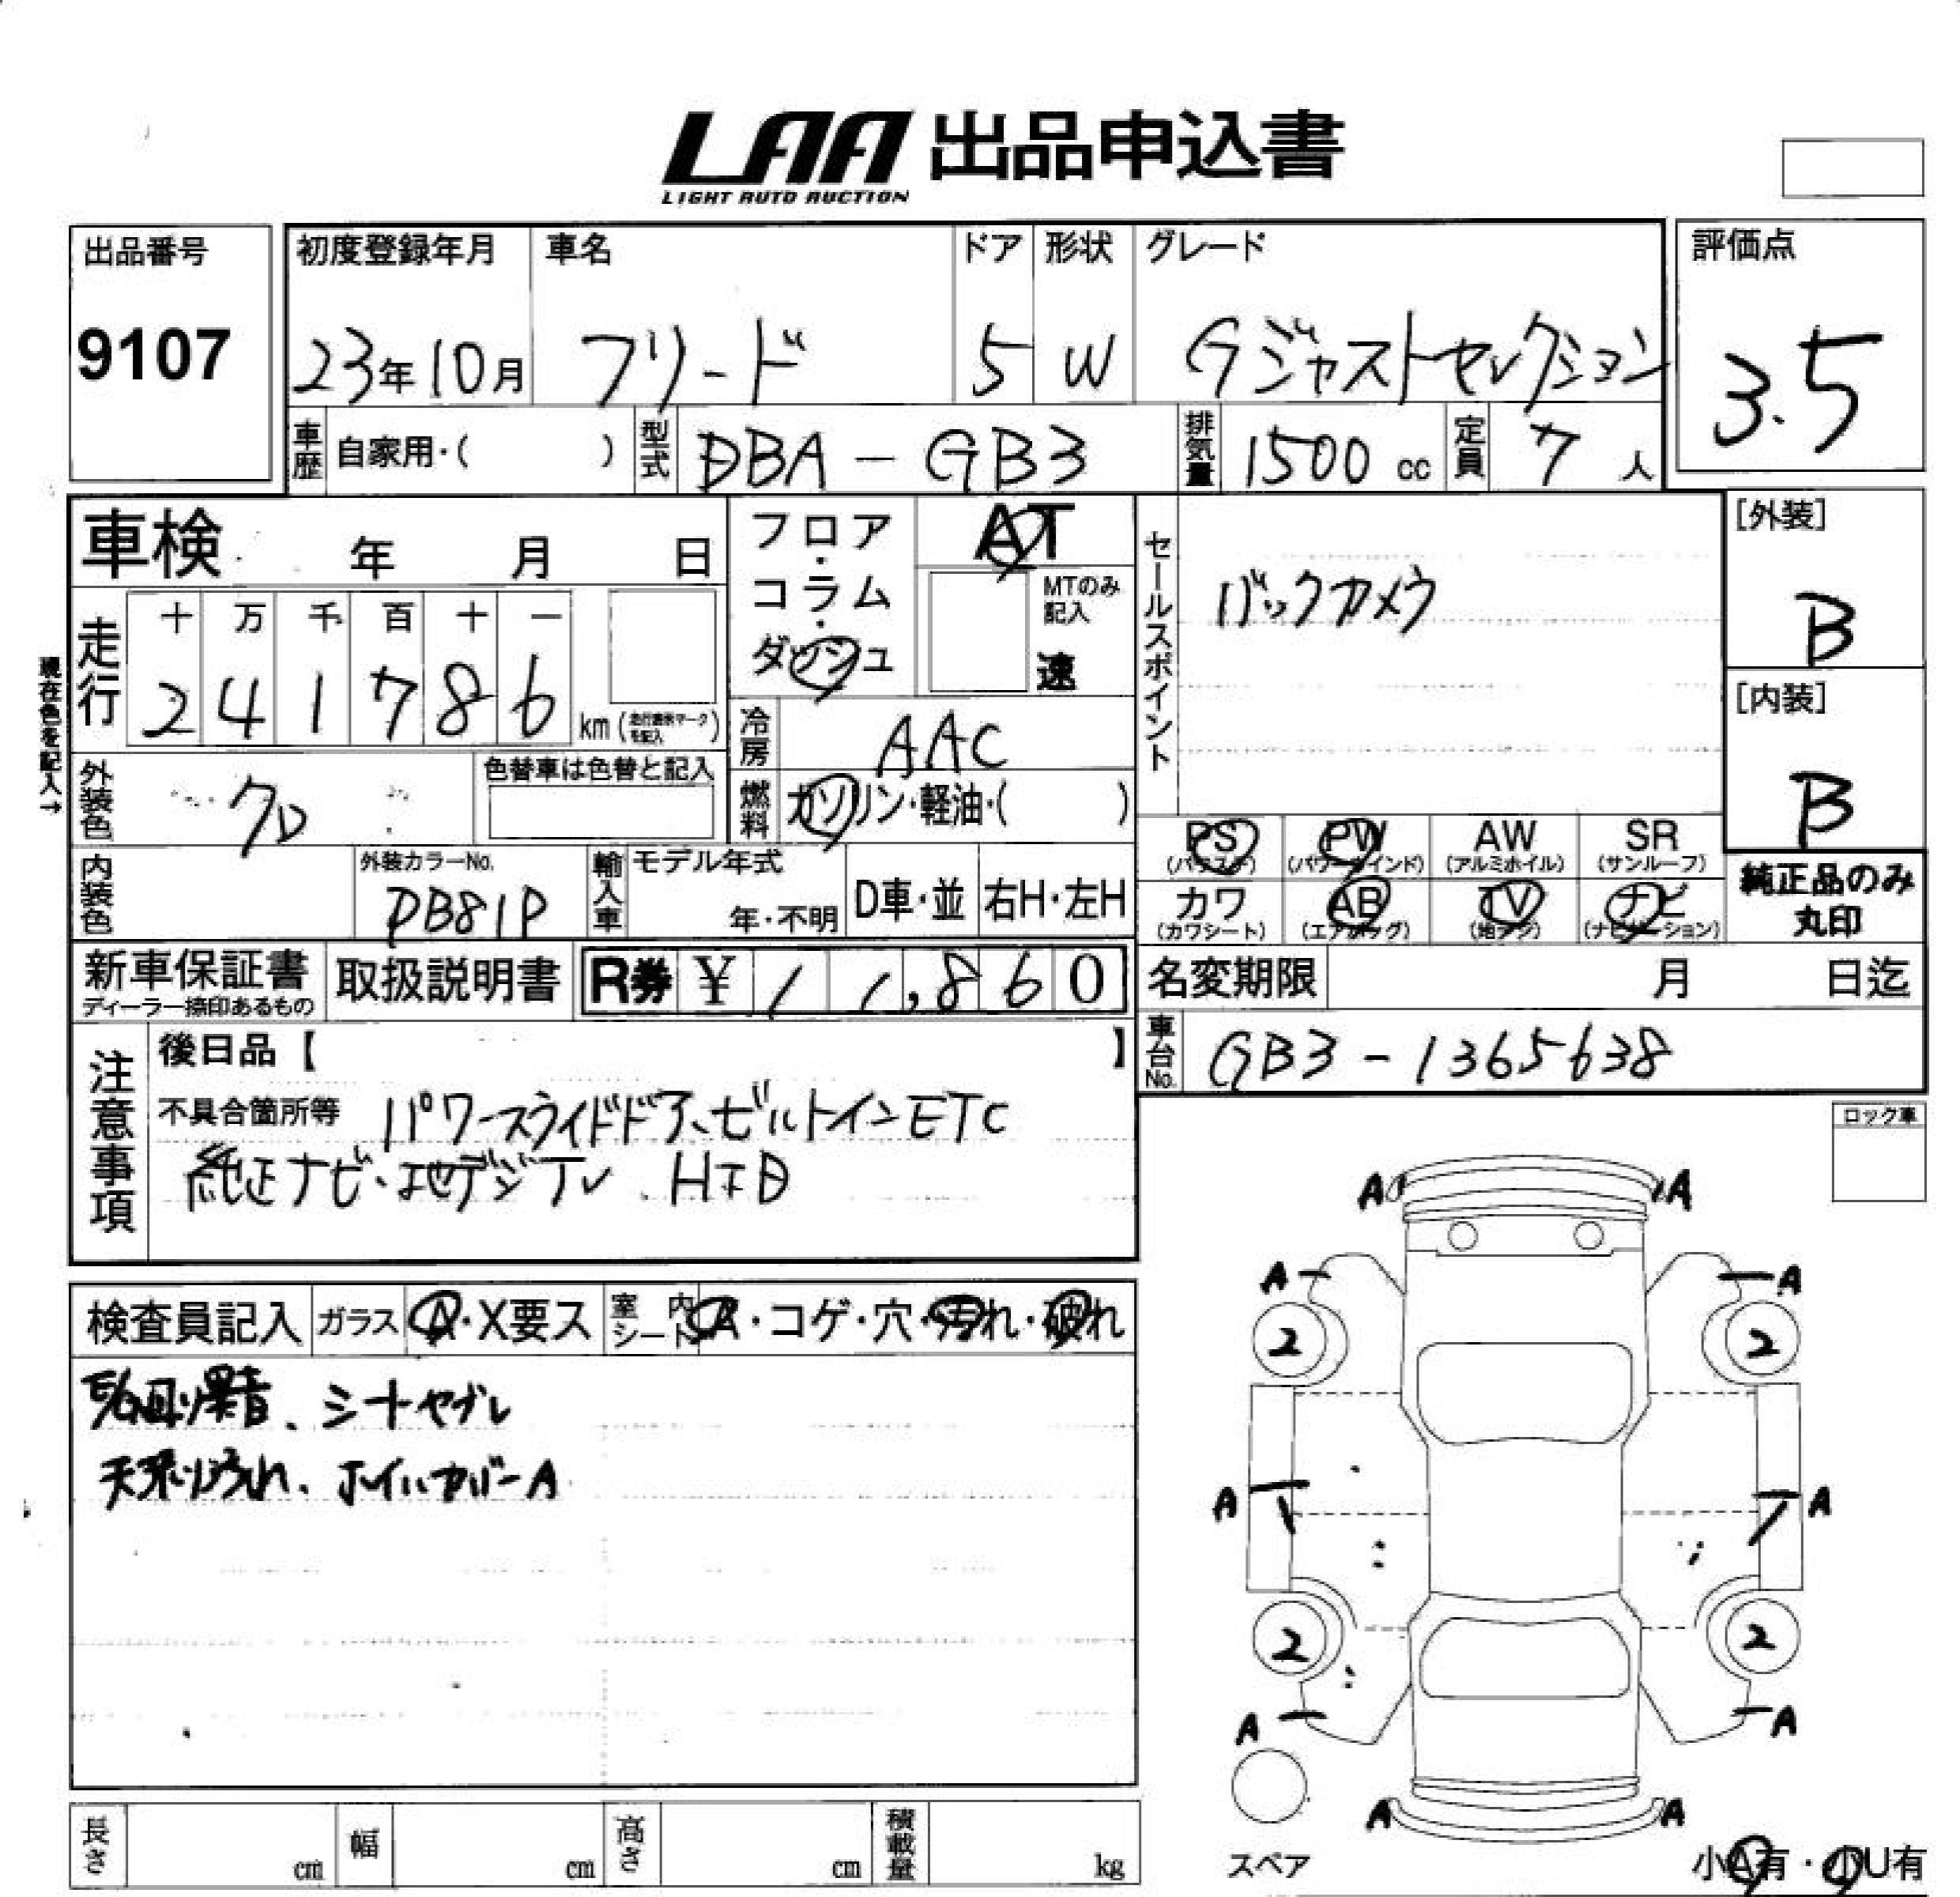 LAA 出品申込書
LIGHT AUTO AUCTION
出品番号
9107
初度登録年月
23年10月
車名
フリード
ドア
5
形状
W
グレード
Gジャストセレクション
評価点
3.5
車歴 自家用・( )
型式 DBA-GB3
排気量 1500 cc
定員 7 人
車検 年 月 日
走行
十 万 千 百 十 一
2 4 1 7 8 6 km (走行表示マークを記入)
現在色を記入→
フロア・コラム・ダッシュ
AT
MTのみ記入
速
冷房 AAC
燃料 ガソリン・軽油・( )
セールスポイント
バックカメラ
[外装]
B
[内装]
B
外装色 クロ
色替車は色替と記入
内装色
外装カラーNo.
PB81P
輸入車 モデル年式
年・不明
D車・並
右H・左H
PS (パワステ)
PW (パワーウインド)
AW (アルミホイル)
SR (サンルーフ)
カワ (カワシート)
AB (エアバッグ)
TV (地デジ)
ナビ (ナビゲーション)
純正品のみ
丸印
新車保証書
ディーラー捺印あるもの
取扱説明書
R券 ¥ 11,860
名変期限 月 日迄
車台No. GB3-1365638
注意事項
後日品【 】
不具合箇所等 パワースライドドア、ビルトインETC
純正ナビ・地デジTV HID
ロック車
検査員記入
ガラス A・X要ス
室内シート A・コゲ・穴・汚れ・破れ
異音、シートヤブレ
天張り汚れ、ホイルカバーA
A A
A A
2 2
A A
2 2
A A
A A
スペア
小A有・小U有
長さ cm
幅 cm
高さ cm
積載量 kg